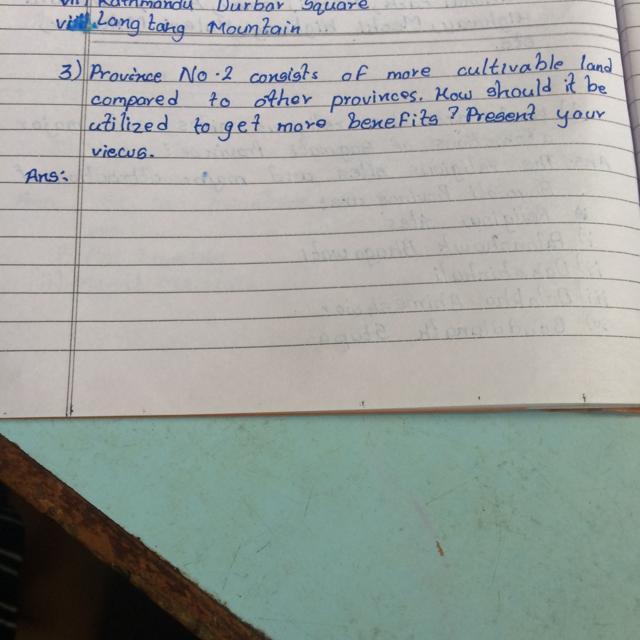 vii) Kathmandu Durbar Square
viii) Langtang Mountain
3) Province No.2 consists of more cultivable land
compared to other provinces. How should it be
utilized to get more benefits? Present your
views.
Ans: